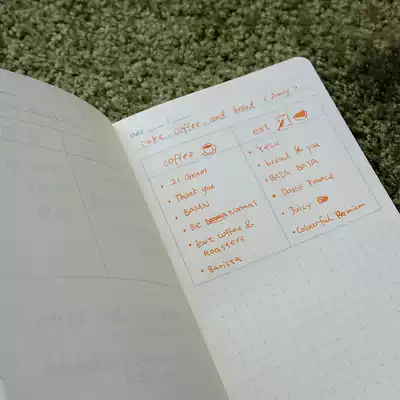 Date
cake, coffee, and bread (Amy)
coffee
• 21 Gram
• Thank you
• BAMN
• Be Normal
• coffee &
Roasters
• Barista
eat
• Yelu
• bread & you
• BATA BATA
• Douce France
• Juicy
• Colourful